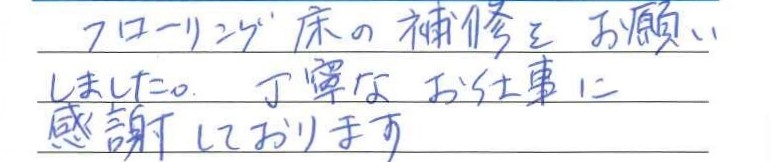 フローリング床の補修をお願い
しました。丁寧なお仕事に
感謝しております